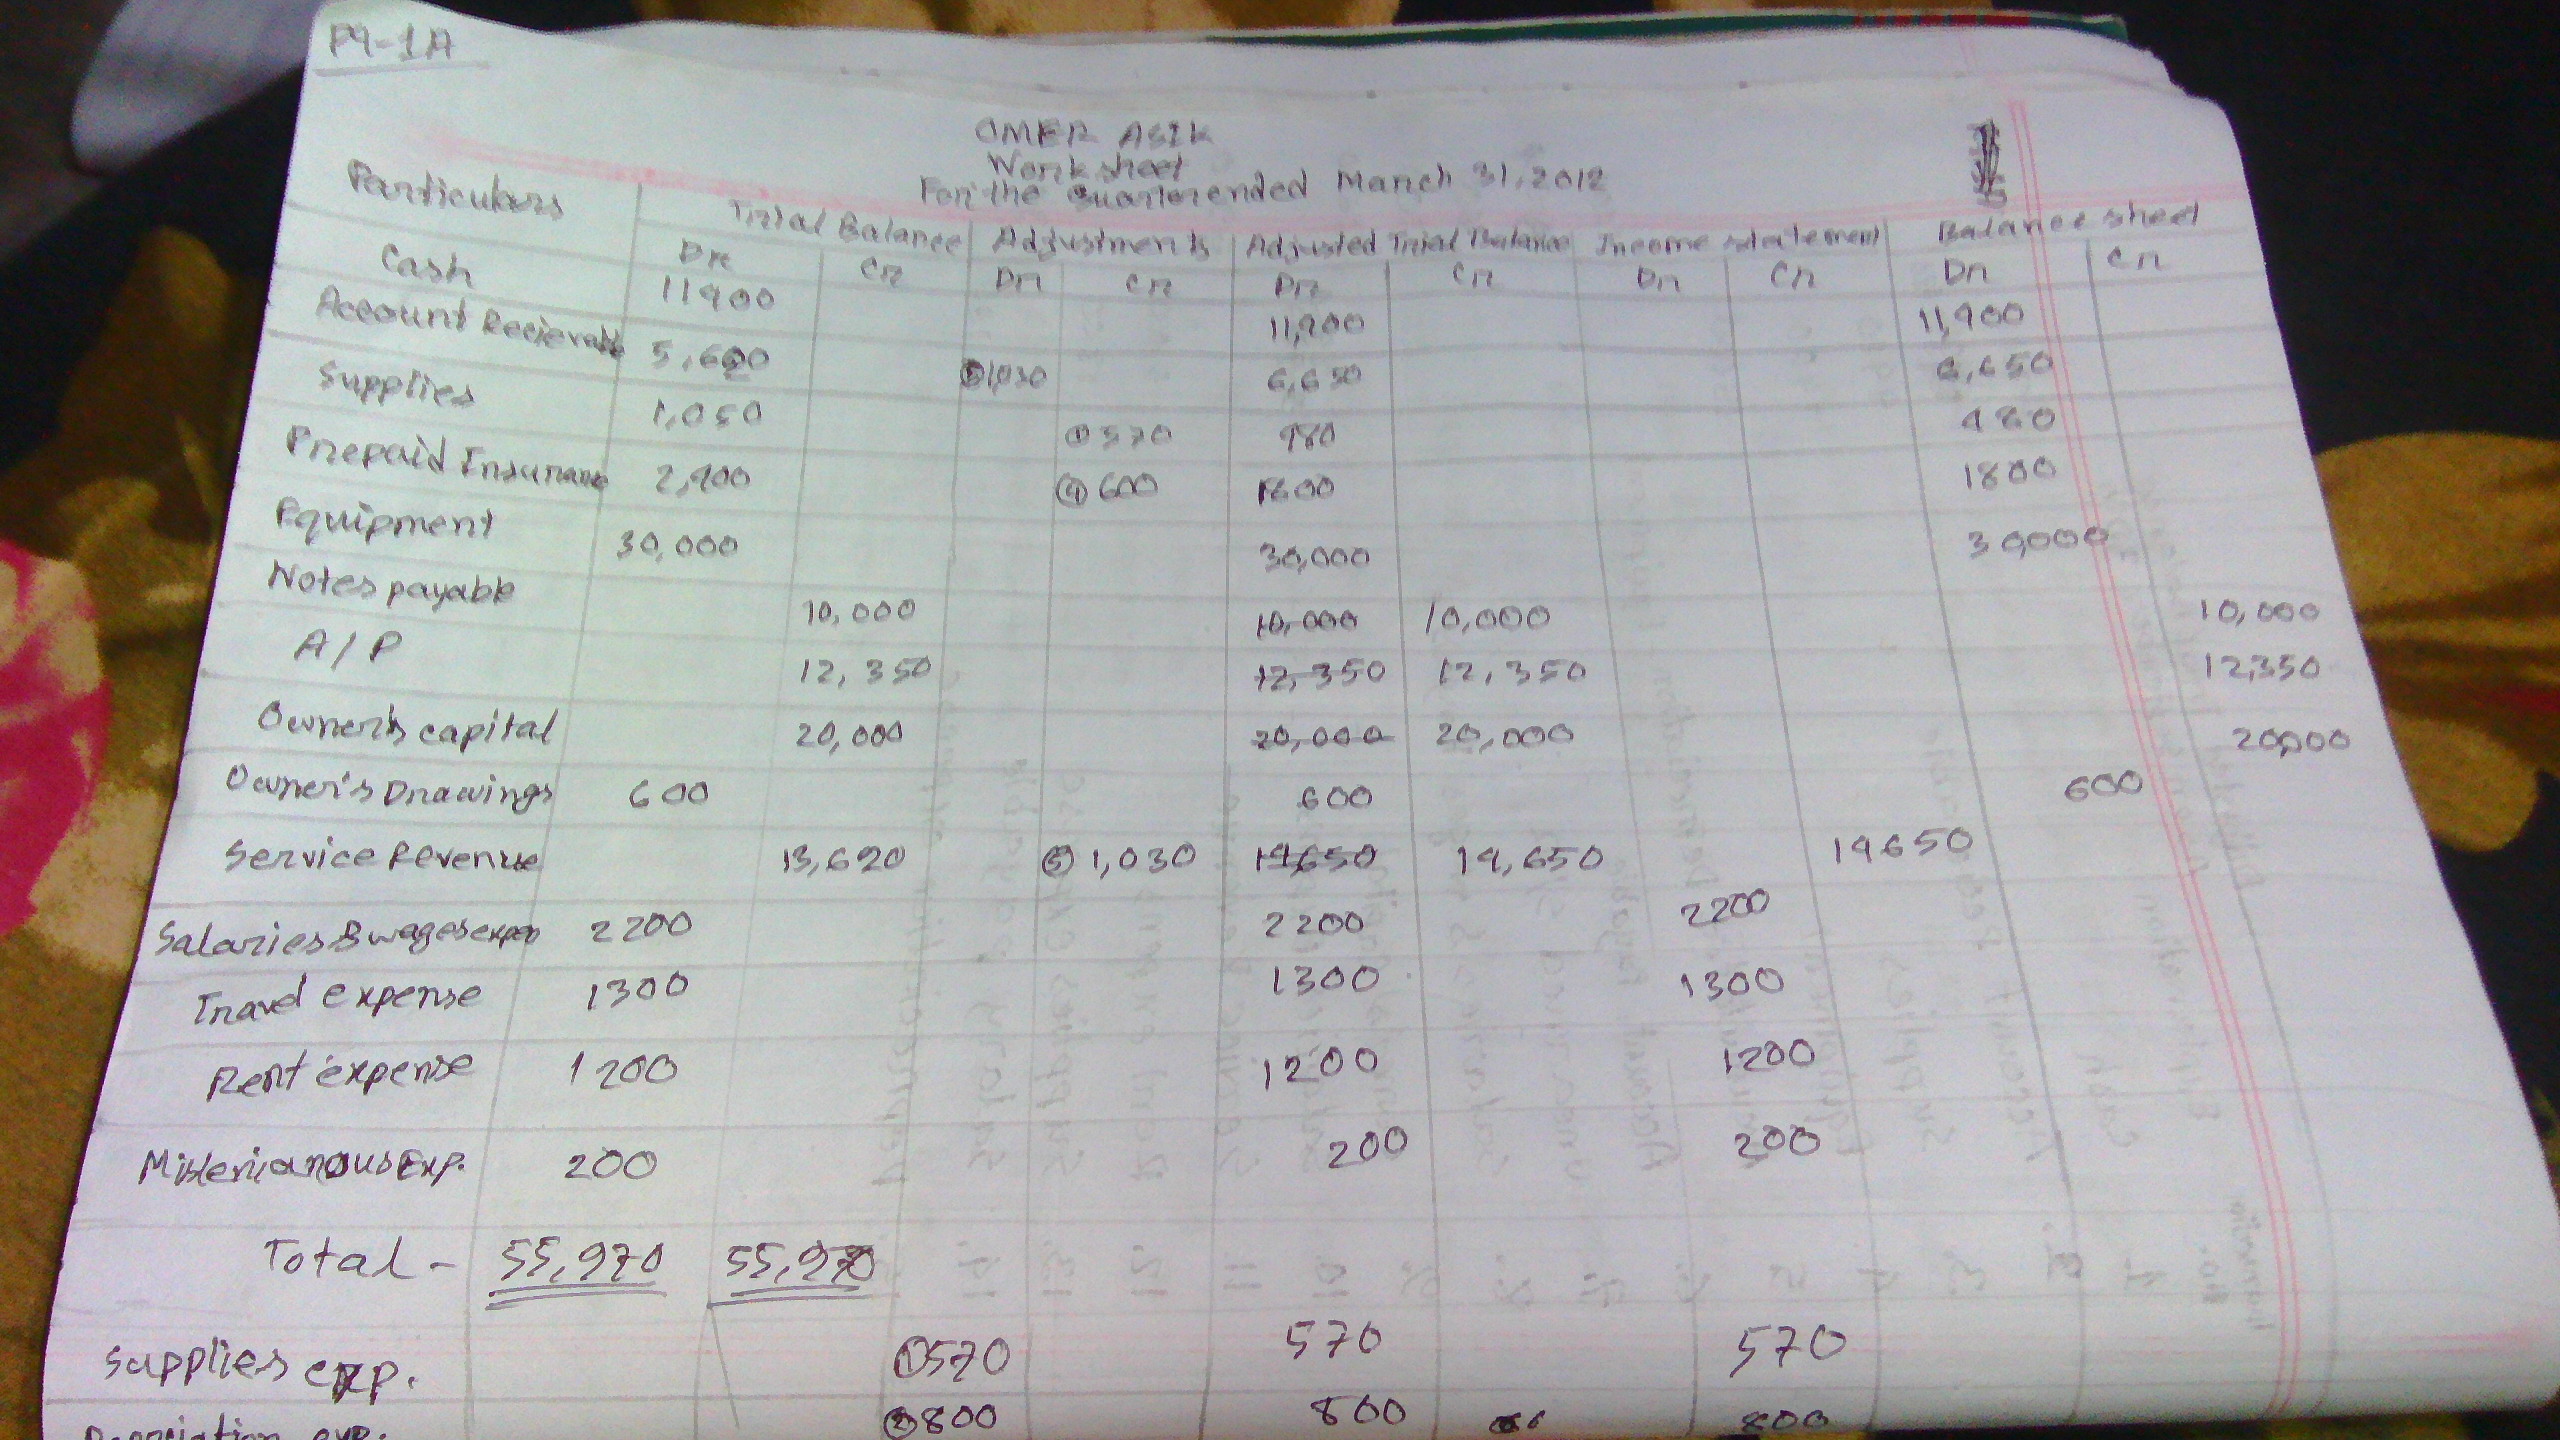 P4-1A
OMER ASIK
Worksheet
For the Quarter ended March 31, 2012
Particulars Trial Balance Adjustments Adjusted Trial Balance Income statement Balance sheet
Dr Cr Dr Cr Dr Cr Dr Cr Dr Cr
Cash 11400 11,400 11,400
Account Recievable 5,620 ⑤1,030 6,650 6,650
Supplies 1,050 ①570 480 480
Prepaid Insurance 2,400 ④600 1800 1800
Equipment 30,000 30,000 30,000
Notes payable 10,000 10,000 10,000 10,000
A/P 12,350 12,350 12,350 12,350
Owner's capital 20,000 20,000 20,000 20,000
Owner's Drawings 600 600 600
Service Revenue 13,620 ⑤1,030 14,650 14,650 14650
Salaries & wages expen 2200 2200 2200
Travel expense 1300 1300 1300
Rent expense 1200 1200 1200
200 200 200
Total - 55,970 55,970
Supplies exp. ①570 570 570
②800 800 800